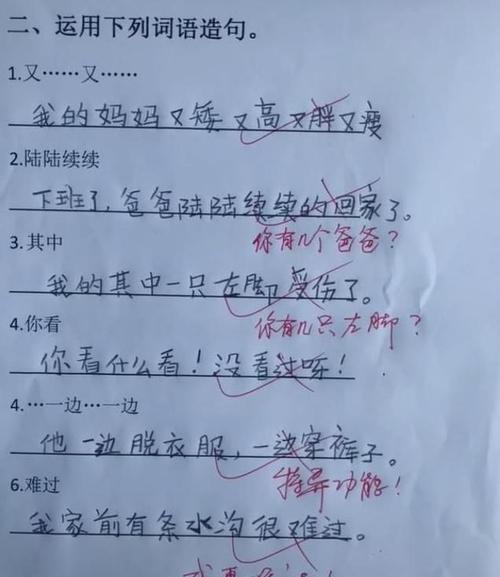 二、运用下列词语造句。
1.又……又……
我的妈妈又矮又高又胖又瘦
2.陆陆续续
下班了,爸爸陆陆续续的回家了。
3.其中
你有几个爸爸?
我的其中一只左脚受伤了。
4.你看
你有几只左脚?
你看什么看!没看过呀!
4.…一边…一边
他一边脱衣服,一边穿裤子。
6.难过
特异功能!
我家前有条水沟很难过。